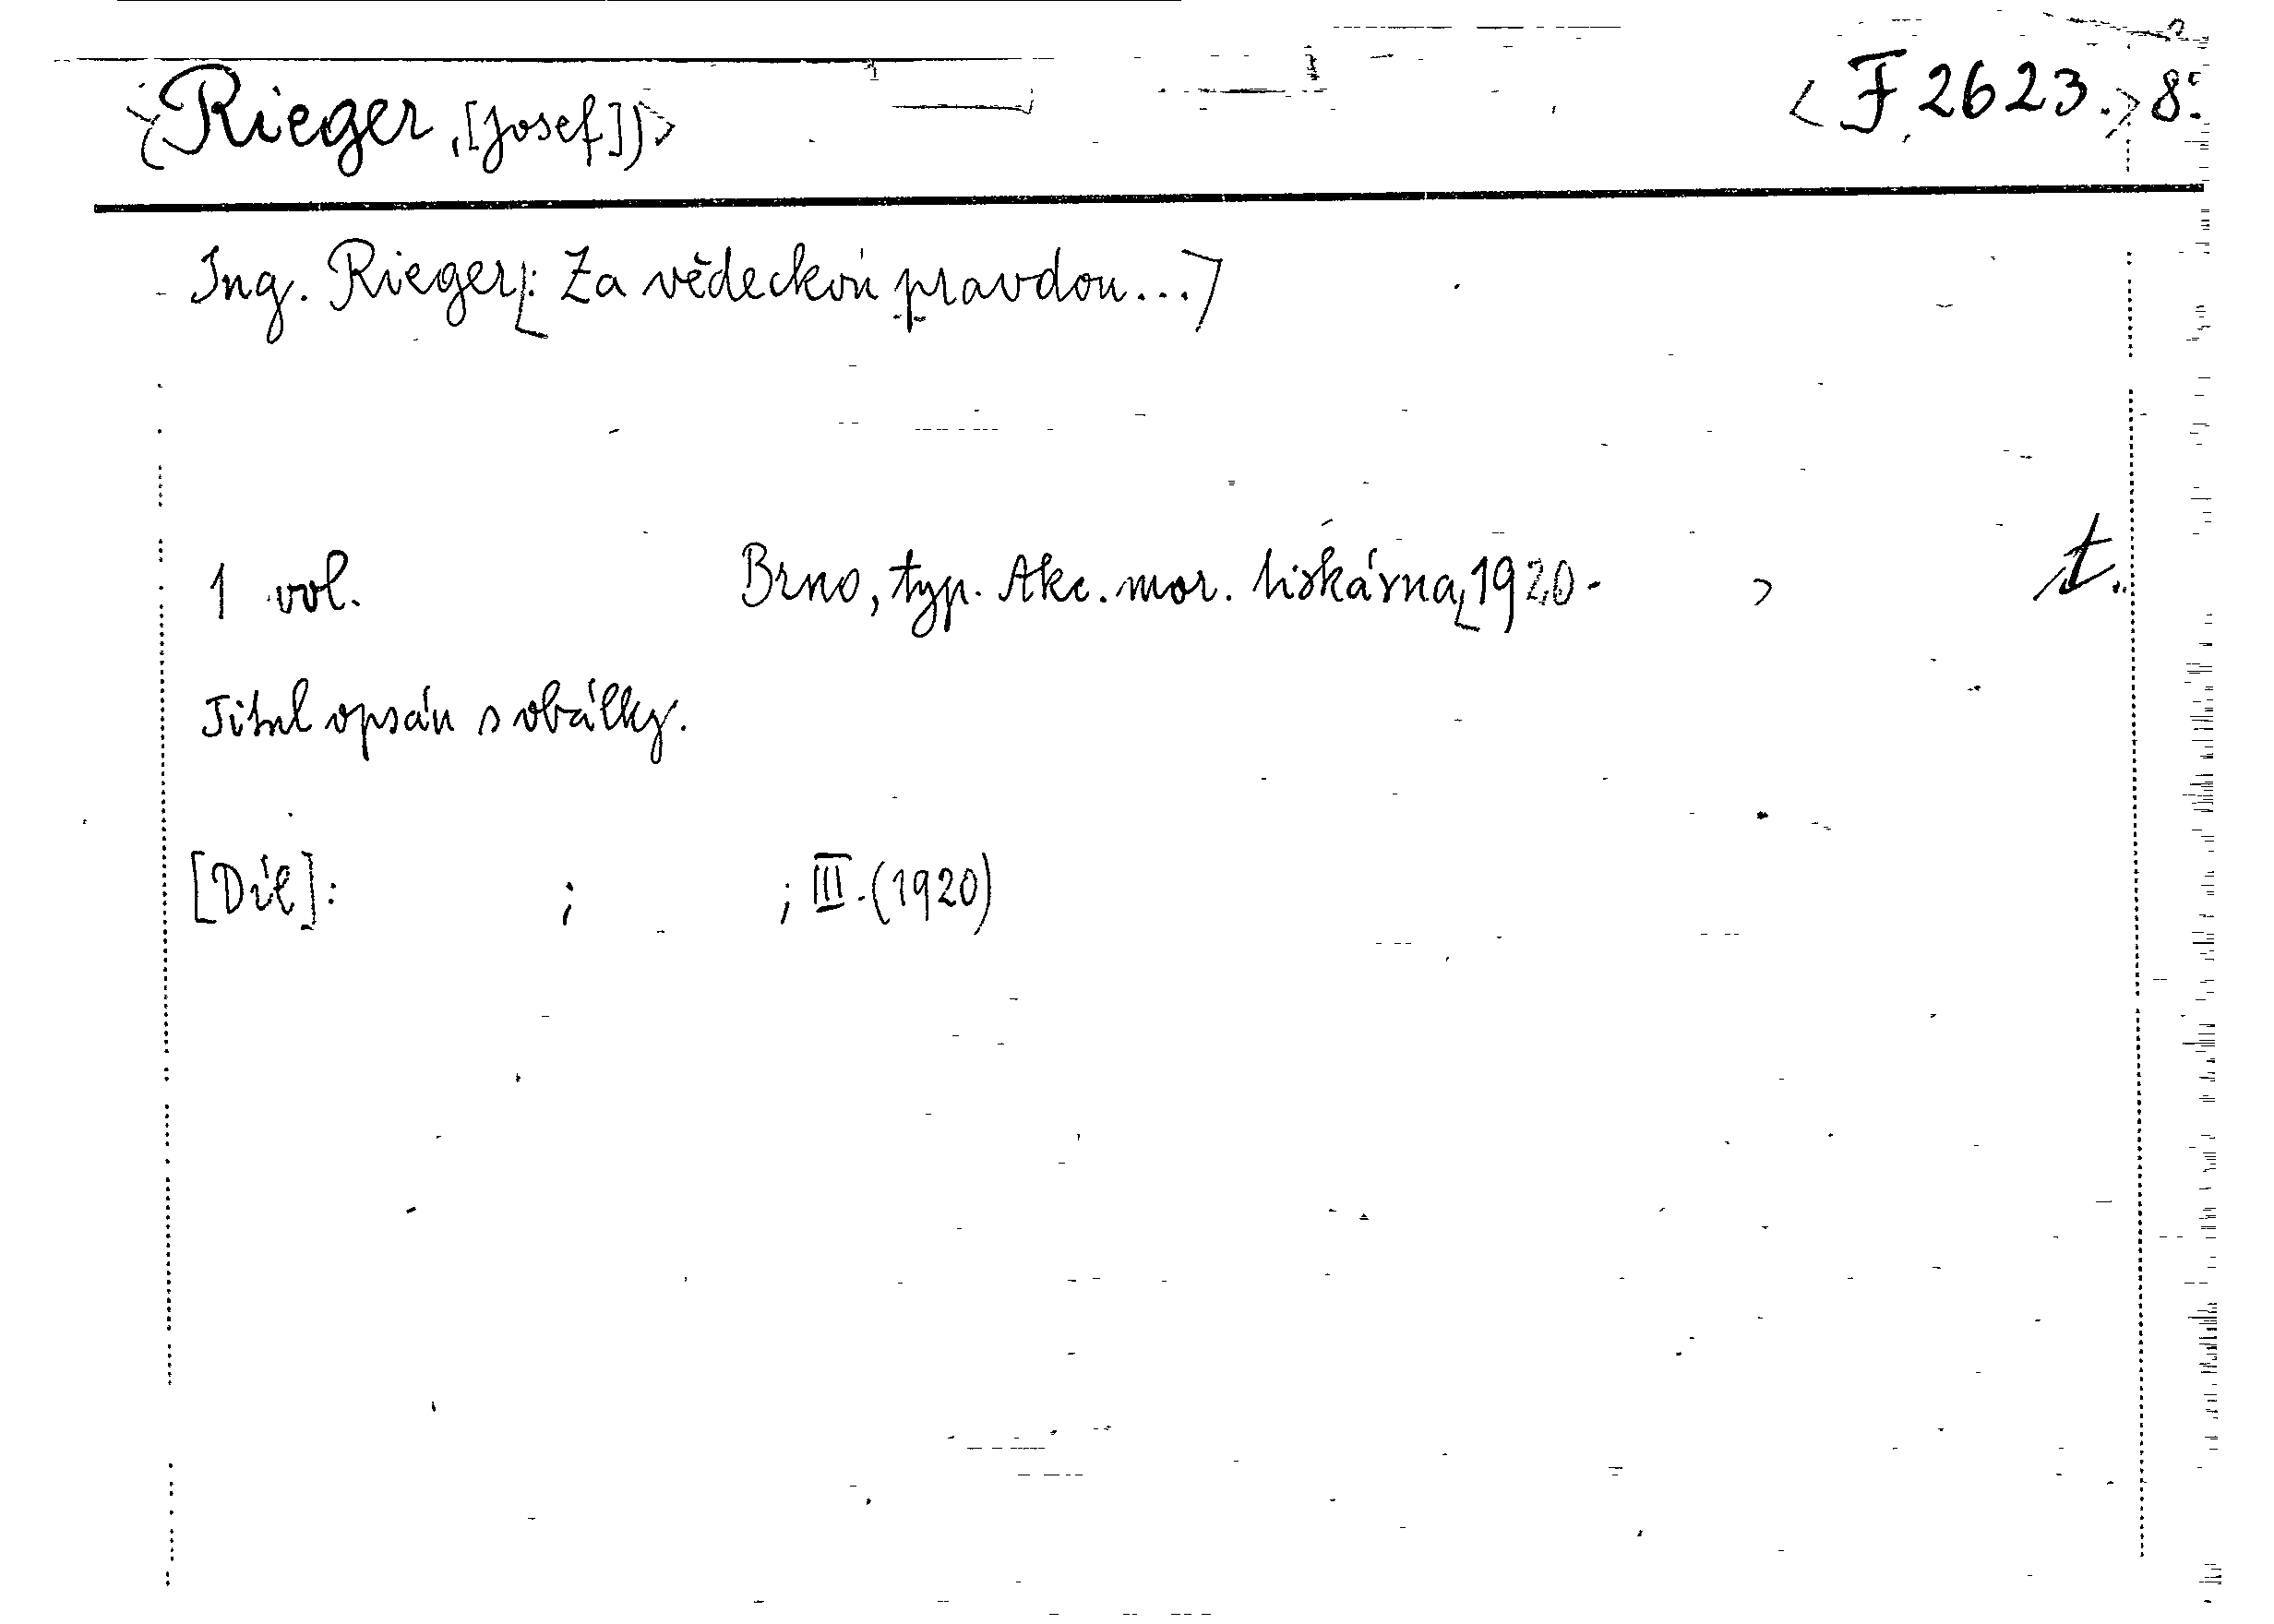 <(Rieger, [Josef])> <F 2623.> 8°.
Ing. Rieger: Za vědeckou pravdou...
1 vol. Brno, typ. Akc. mor. tiskárna, 1920- t.
Titul opsán s obálky.
[Díl]: ; ; III. (1920)